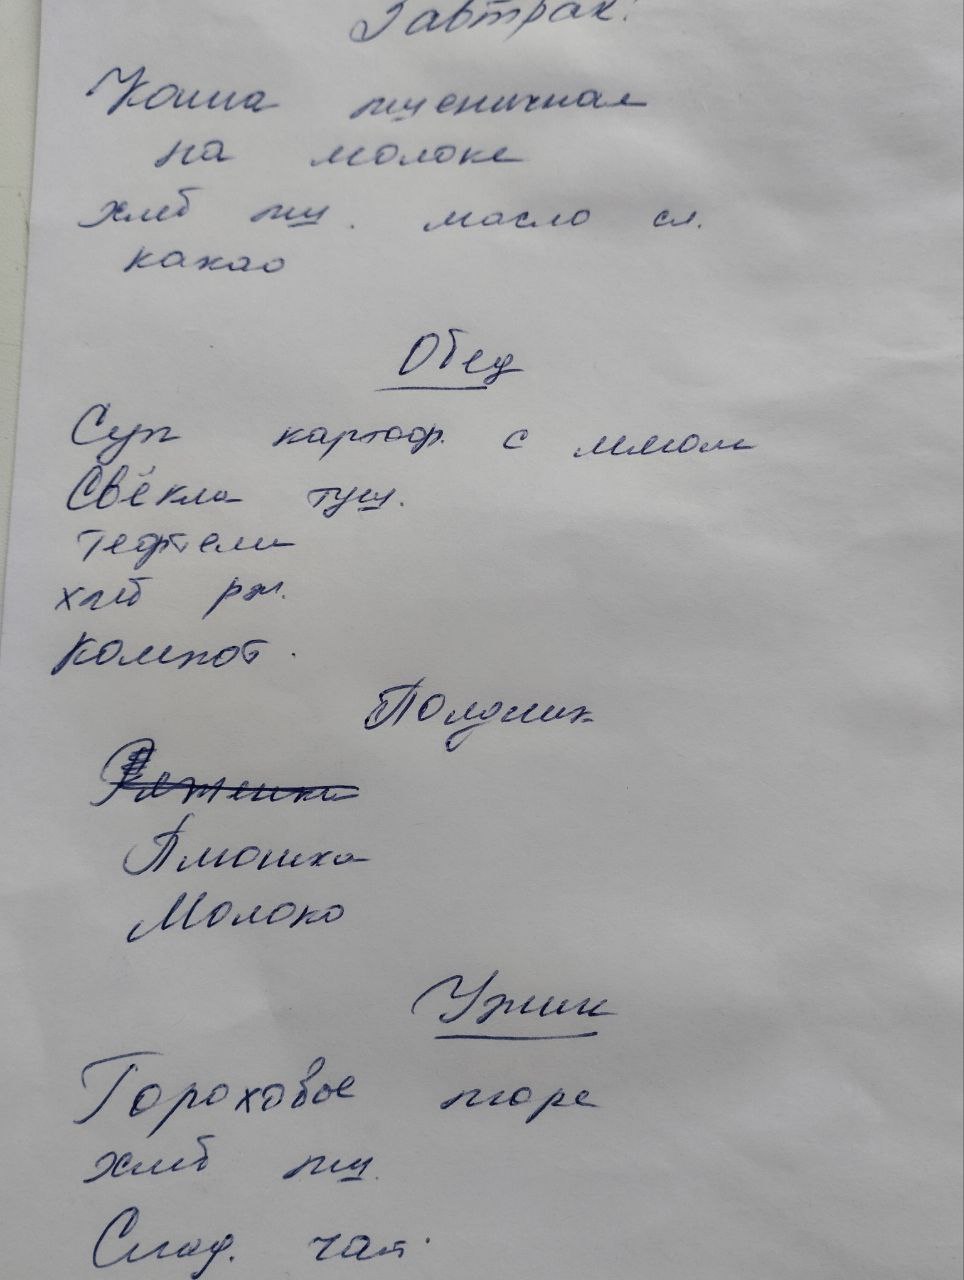 Завтрак:
Каша пшеничная
на молоке
хлеб пш. масло сл.
какао
Обед
Суп картоф. с мясом
Свёкла туш.
тефтели
хлеб рж.
компот.
Полдник
Ряженка
Плюшка
Молоко
Ужин
Гороховое пюре
хлеб пш.
Слад. чай.